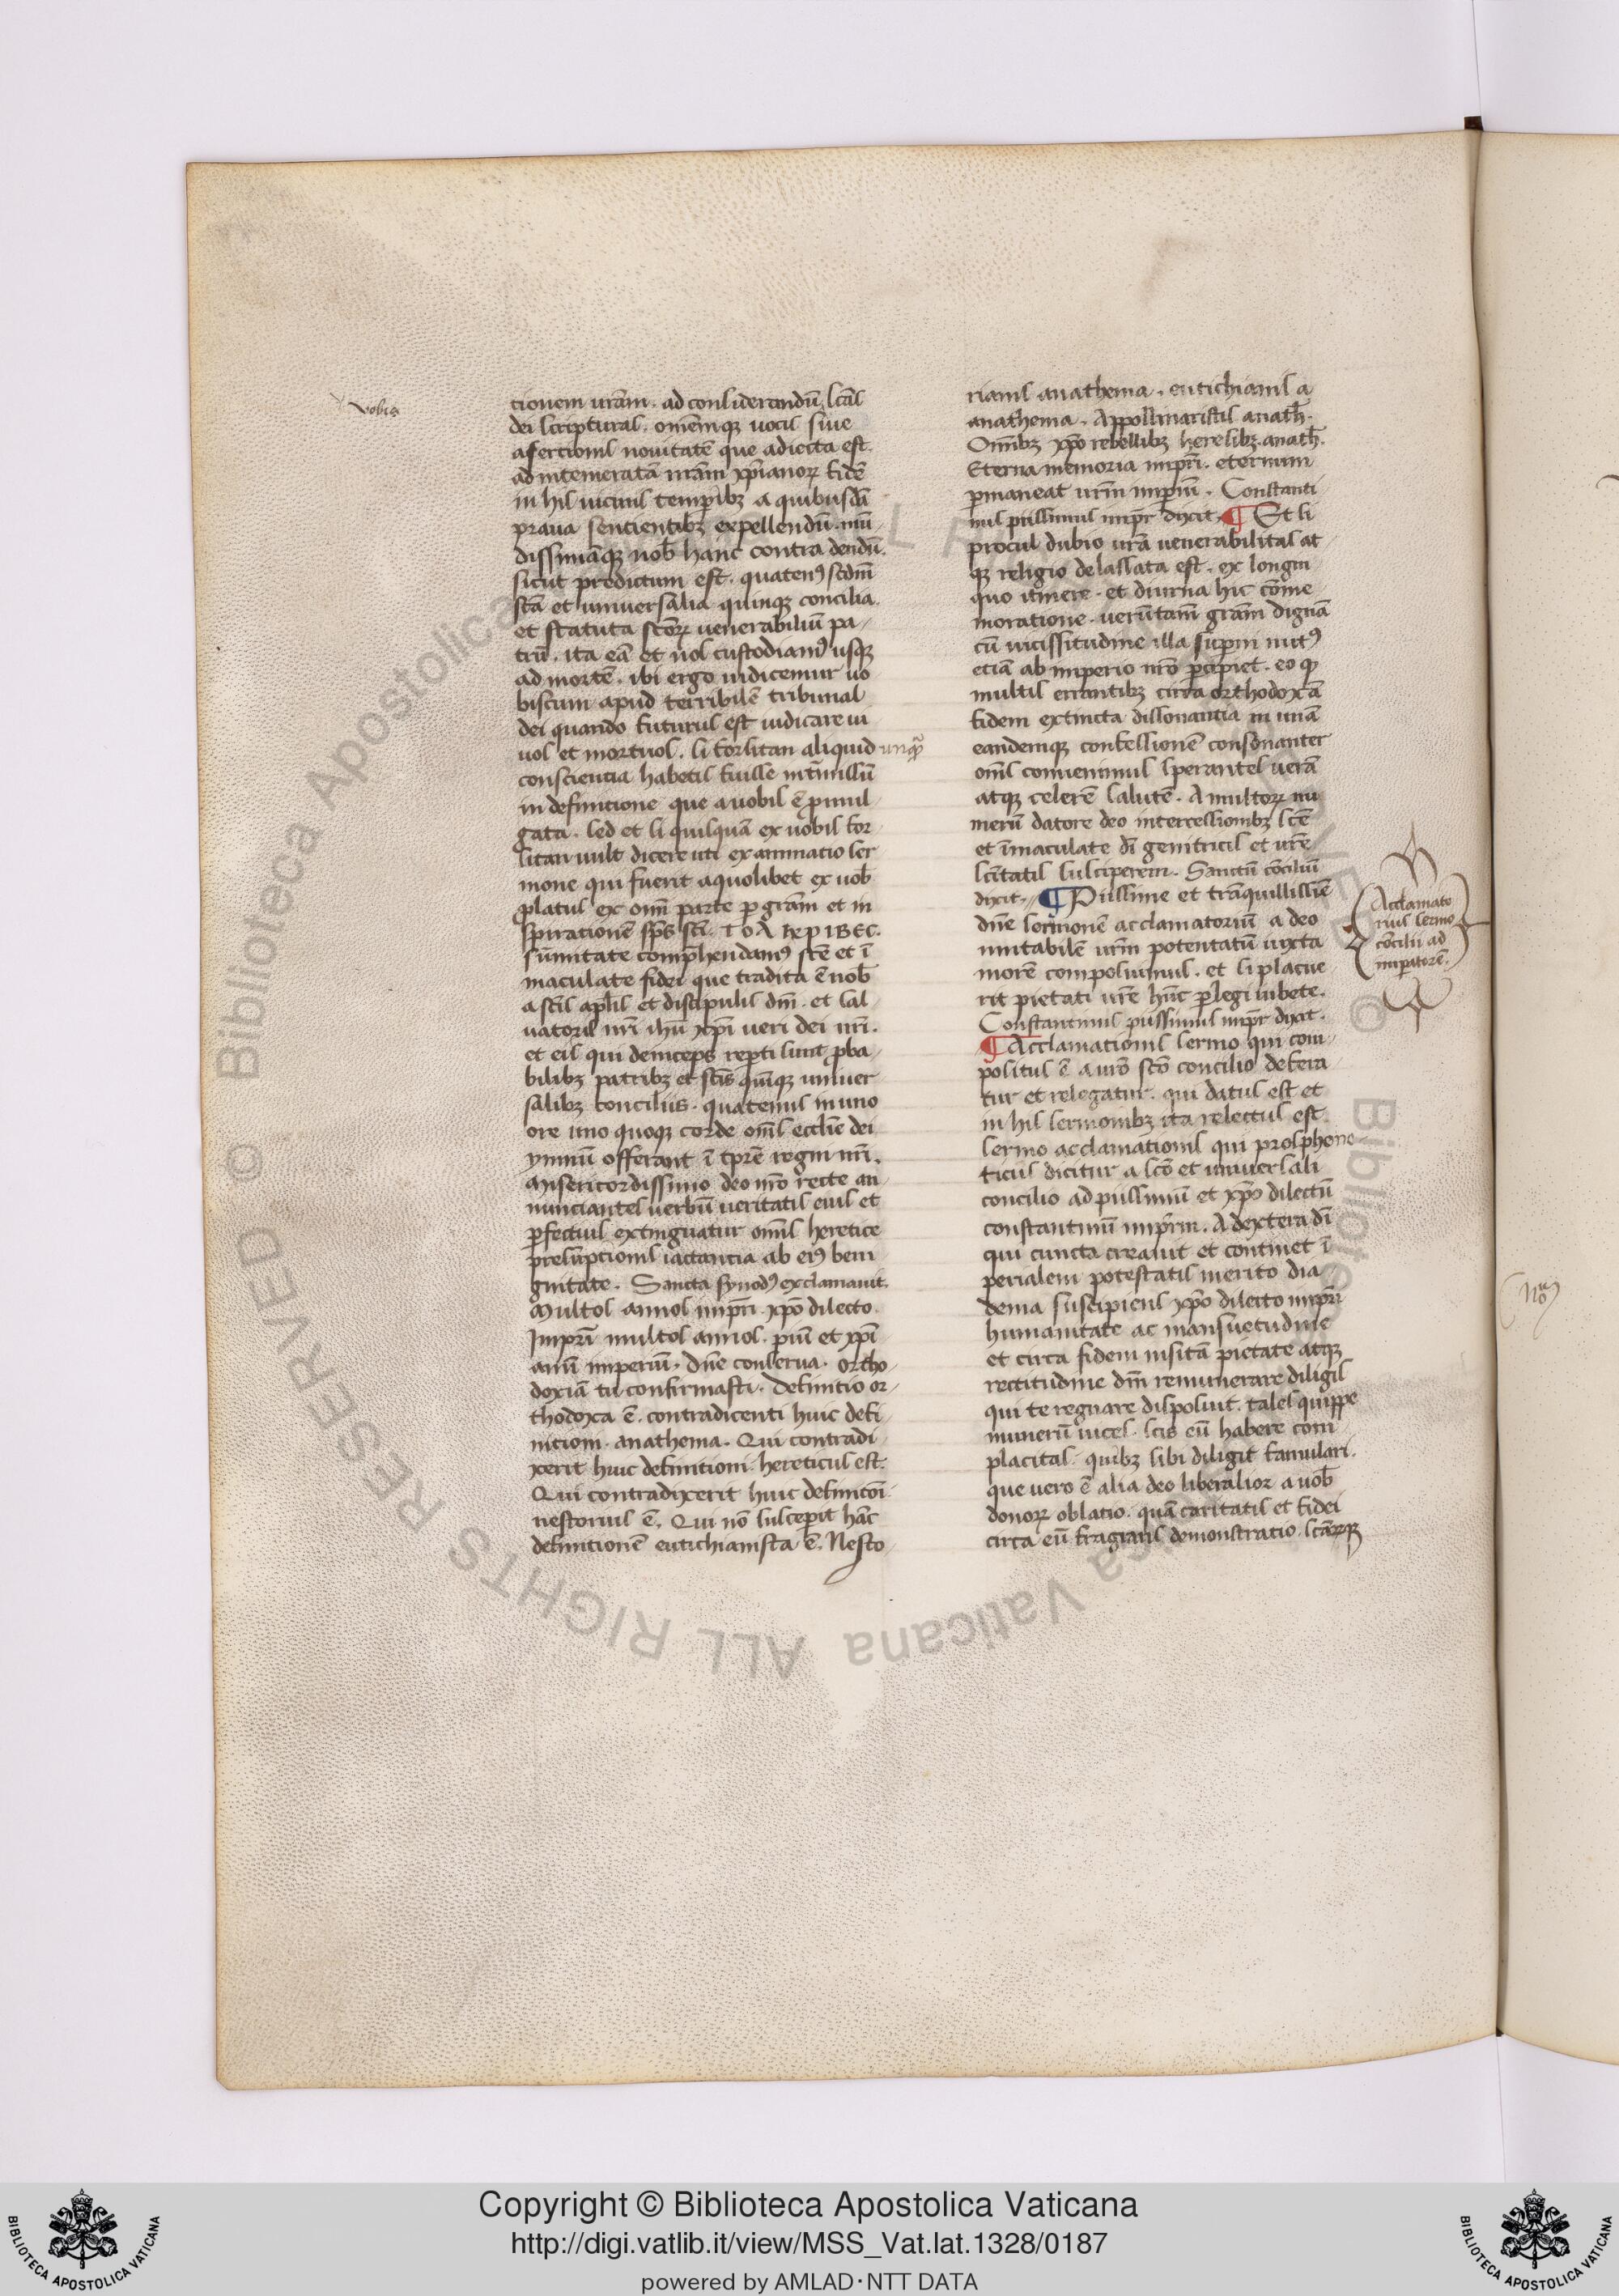 vobis
tionem urãm. ad considerandũ scãs
dei scripturas. omẽmqꝫ uocis siue
asertionis nouitatẽ que adiecta est
ad intemeratã nrãm xp̃ianoꝝ fidẽ
in his uicinis temporibꝫ a quibusdã
praua sentientibꝫ expellendũ.
dissimãqꝫ nob̃ hanc contradendũ.
sicut predictum est. quatenꝰ scdm̃
sc̃a et uniuersalia quinqꝫ concilia.
et statuta sc̃oꝝ uenerabiliũ pa-
trũ. ita eã et nos custodiamꝰ usqꝫ
ad mortẽ. ibi ergo iudicemur uo
biscum apud terribilẽ tribunal
dei quando futurus est iudicare ui
uos et mortuos. si forsitan aliquid unqꝫ
conscientia habetis fuisse int̃missũ
in definitione que a uobis ẽ ꝓmul-
gata. sed et si quisquã ex uobis for
sitan uult dicere uti examinatio ser
mone qui fuerit a quolibet ex uob̃
ꝓlatus ex om̃i parte ꝑ grãm et in
spirationẽ sp̃s sc̃i.
sũmitate comp̃hendamꝰ sc̃e et ĩ
maculate fidei que tradita ẽ nob̃
a sc̃is apl̃is et discipulis dñi. et sal-
uatoris nr̃i ihũ xp̃i ueri dei nr̃i.
et eis qui deinceps rep̃ti sunt ꝓba-
bilibꝫ patribꝫ et sc̃is quinqꝫ uniuer
salibꝫ conciliis. quatenus in uno
ore uno quoqꝫ corde om̃s eccl̃ie dei
ymnũ offerant ĩ tp̃re regni nr̃i.
Misericordissimo deo nr̃o recte an-
nunciantes uerbũ ueritatis eius et
ꝑfectius extinguatur om̃s heretice
presũptionis iactantia ab eiꝰ beni
gnitate. Sancta synodꝰ exclamauit.
Multos annos imp̃ri. xp̃o dilecto
Imp̃ri multos annos. piũ et xp̃i
anũ imperiũ. dñe conserua. ortho-
doxiã tu confirmasti. definitio or-
thodoxa ẽ. contradicenti huic defi-
nitioni. anathema. Qui contradi-
xerit huic definitioni. hereticus est.
Qui contradixerit huic definitoĩ.
nestorius ẽ. Qui nõ suscepit hãc
definitionẽ eutichianista ẽ. Nesto-
rianis anathema. eutichianis a
anathema. Appollinaristis anath̃.
Om̃ibꝫ xp̃o rebellibꝫ heresibꝫ. anath̃.
Eterna memoria imp̃ri. eternum
ꝑmaneat ur̃m imp̃iũ. Constanti
nus piissimus imp̃r dixit. ¶ Et si
procul dubio ur̃a uenerabilitas at
qꝫ religio delassata est. ex longin
quo itinere. et diurna hic cõme
moratione. uerũtam̃ grãm dignã
cũ uicissitudine illa sup̃ni nutꝰ
etiã ab imperio nr̃o ꝑcipiet. eo ꝙ
multis errantibꝫ circa orthodoxã
fidem extincta dissonantia in unã
eandemqꝫ confessionẽ consonanter
om̃s conuenimus sperantes uerã
atqꝫ celerẽ salutẽ. A multoꝝ mu
nerũ datore deo intercessionibꝫ sc̃e
et ĩmaculate dĩ genitricis et ur̃e
sc̃itatis susciperem. Sanctũ cõciliũ
dixit. ¶ Piissime et trãquillissie
dñe sermonẽ acclamatoriũ a deo
imitabilẽ ur̃m potentatũ iuxta
morẽ composuimus. et si placue
rit pietati ur̃e hũc ꝑlegi iubete.
Constantinus piissimus imp̃r dixit.
¶ Acclamationis sermo qui com-
positus ẽ a ur̃o sc̃o concilio defera
tur et relegatur. qui datus est et
in his sermonibꝫ ita relectus est.
sermo acclamationis qui prosphone-
ticus dicitur a sc̃o et uniuersali
concilio ad piissimũ et xp̃o dilectũ
constantinũ imp̃rm. A dextera dĩ
qui cuncta creauit et continet ĩ
perialem potestatis merito dia-
dema suscipiens xp̃o dilecto imp̃ri
humanitate ac mansuetudine
et circa fidem insitã pietate atqꝫ
rectitudine dñm remunerare diligis
qui te regnare disposuit. tales quippe
munerũ uices. scis eũ habere com-
placitas. quibꝫ sibi diligit famulari.
que uero ẽ alia deo liberalior a uob̃
donoꝝ oblatio. quã caritatis et fidei
circa eũ fragrans demonstratio. sc̃aꝝqꝫ
Acclamato
rius sermo
cõcilii ad
imperatorẽ.